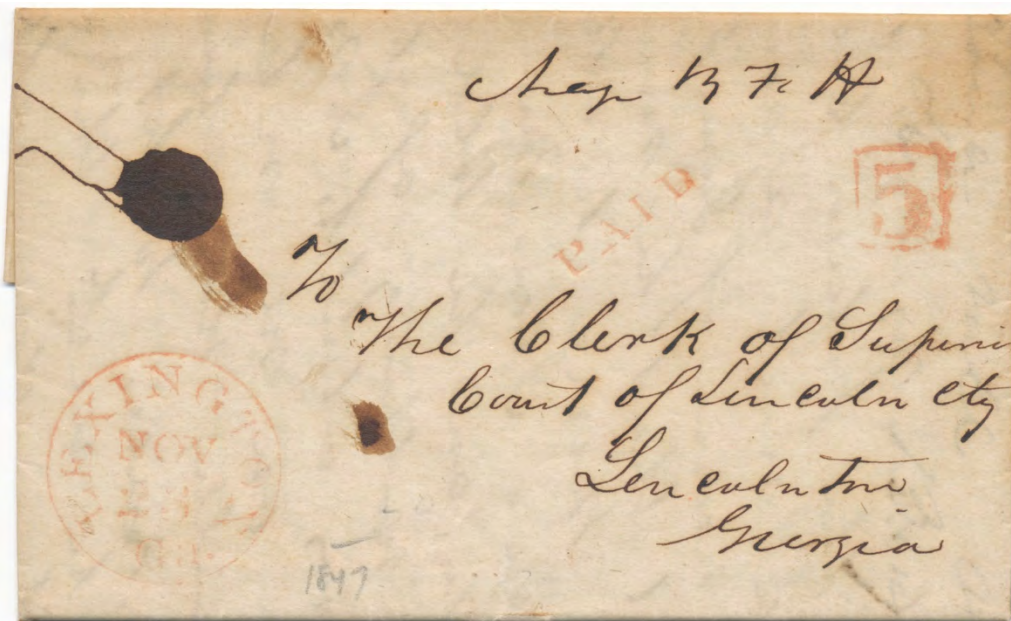 PAID
5
To
The Clerk of Superi
Court of Lincoln Cty
Lincolnton
Georgia
LEXINGTON
NOV
Ga.
1847